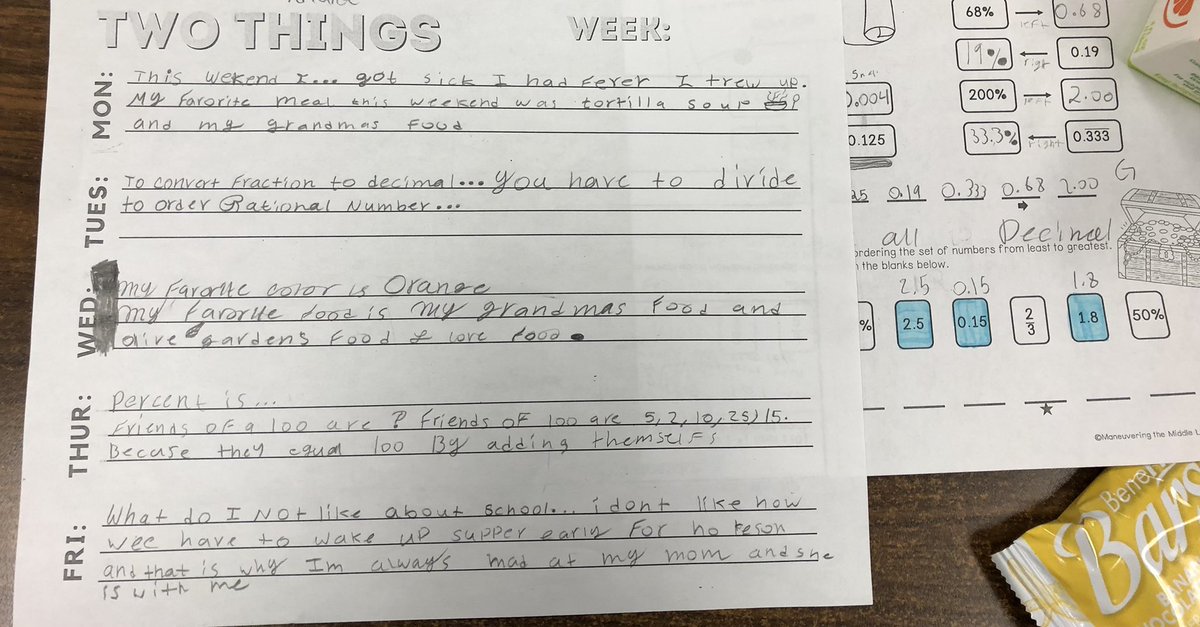 TWO THINGS
WEEK:
MON:
This wekend I... got sick I had fever I trew up.
My Favorite meal this weekend was tortilla soup
and my grandmas Food
TUES:
To convort Fraction to decimal... you have to divide
to order Rational Number...
WED:
my Favorite color is Orange
my Favorite food is my grandmas Food and
olive gardens Food I love food
THUR:
Percent is...
Friends of a 100 are ? Friends of 100 are 5, 2, 10, 25, 15.
Becase they equal 100 By adding themselfs
FRI:
What do I NOt like about School... i dont like how
wee have to wake up supper early For no reson
and that is why Im always mad at my mom and she
is with me
68% → 0.68
left
19% ← 0.19
right
0.004
200% → 2.00
left
0.125
33.3% ← 0.333
right
0.19 0.333 0.68 2.00
G
all Decimal
ordering the set of numbers from least to greatest.
the blanks below.
2.5 0.15 1.8
% 2.5 0.15 2/3 1.8 50%
©Maneuvering the Middle